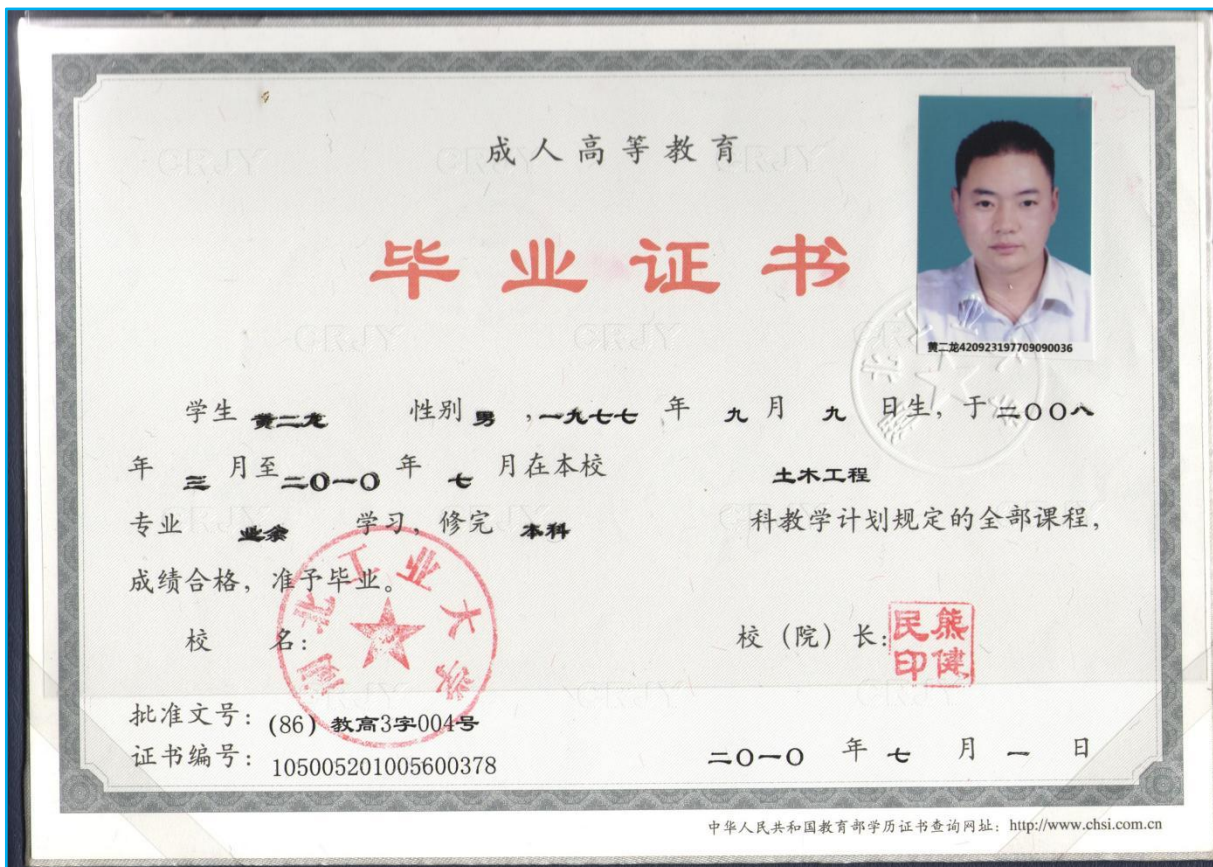 成人高等教育
毕业证书
黄二龙420923197709090036
学生 黄二龙 性别 男 ,一九七七 年 九 月 九 日生, 于 二〇〇八
年 三 月至 二〇一〇 年 七 月在本校 土木工程
专业 业余 学习, 修完 本科 科教学计划规定的全部课程,
成绩合格, 准予毕业。
校 名: 湖北工业大学
校 (院) 长: 熊健民印
批准文号: (86) 教高3字004号
证书编号: 105005201005600378
二〇一〇 年 七 月 一 日
中华人民共和国教育部学历证书查询网址: http://www.chsi.com.cn
CRJY